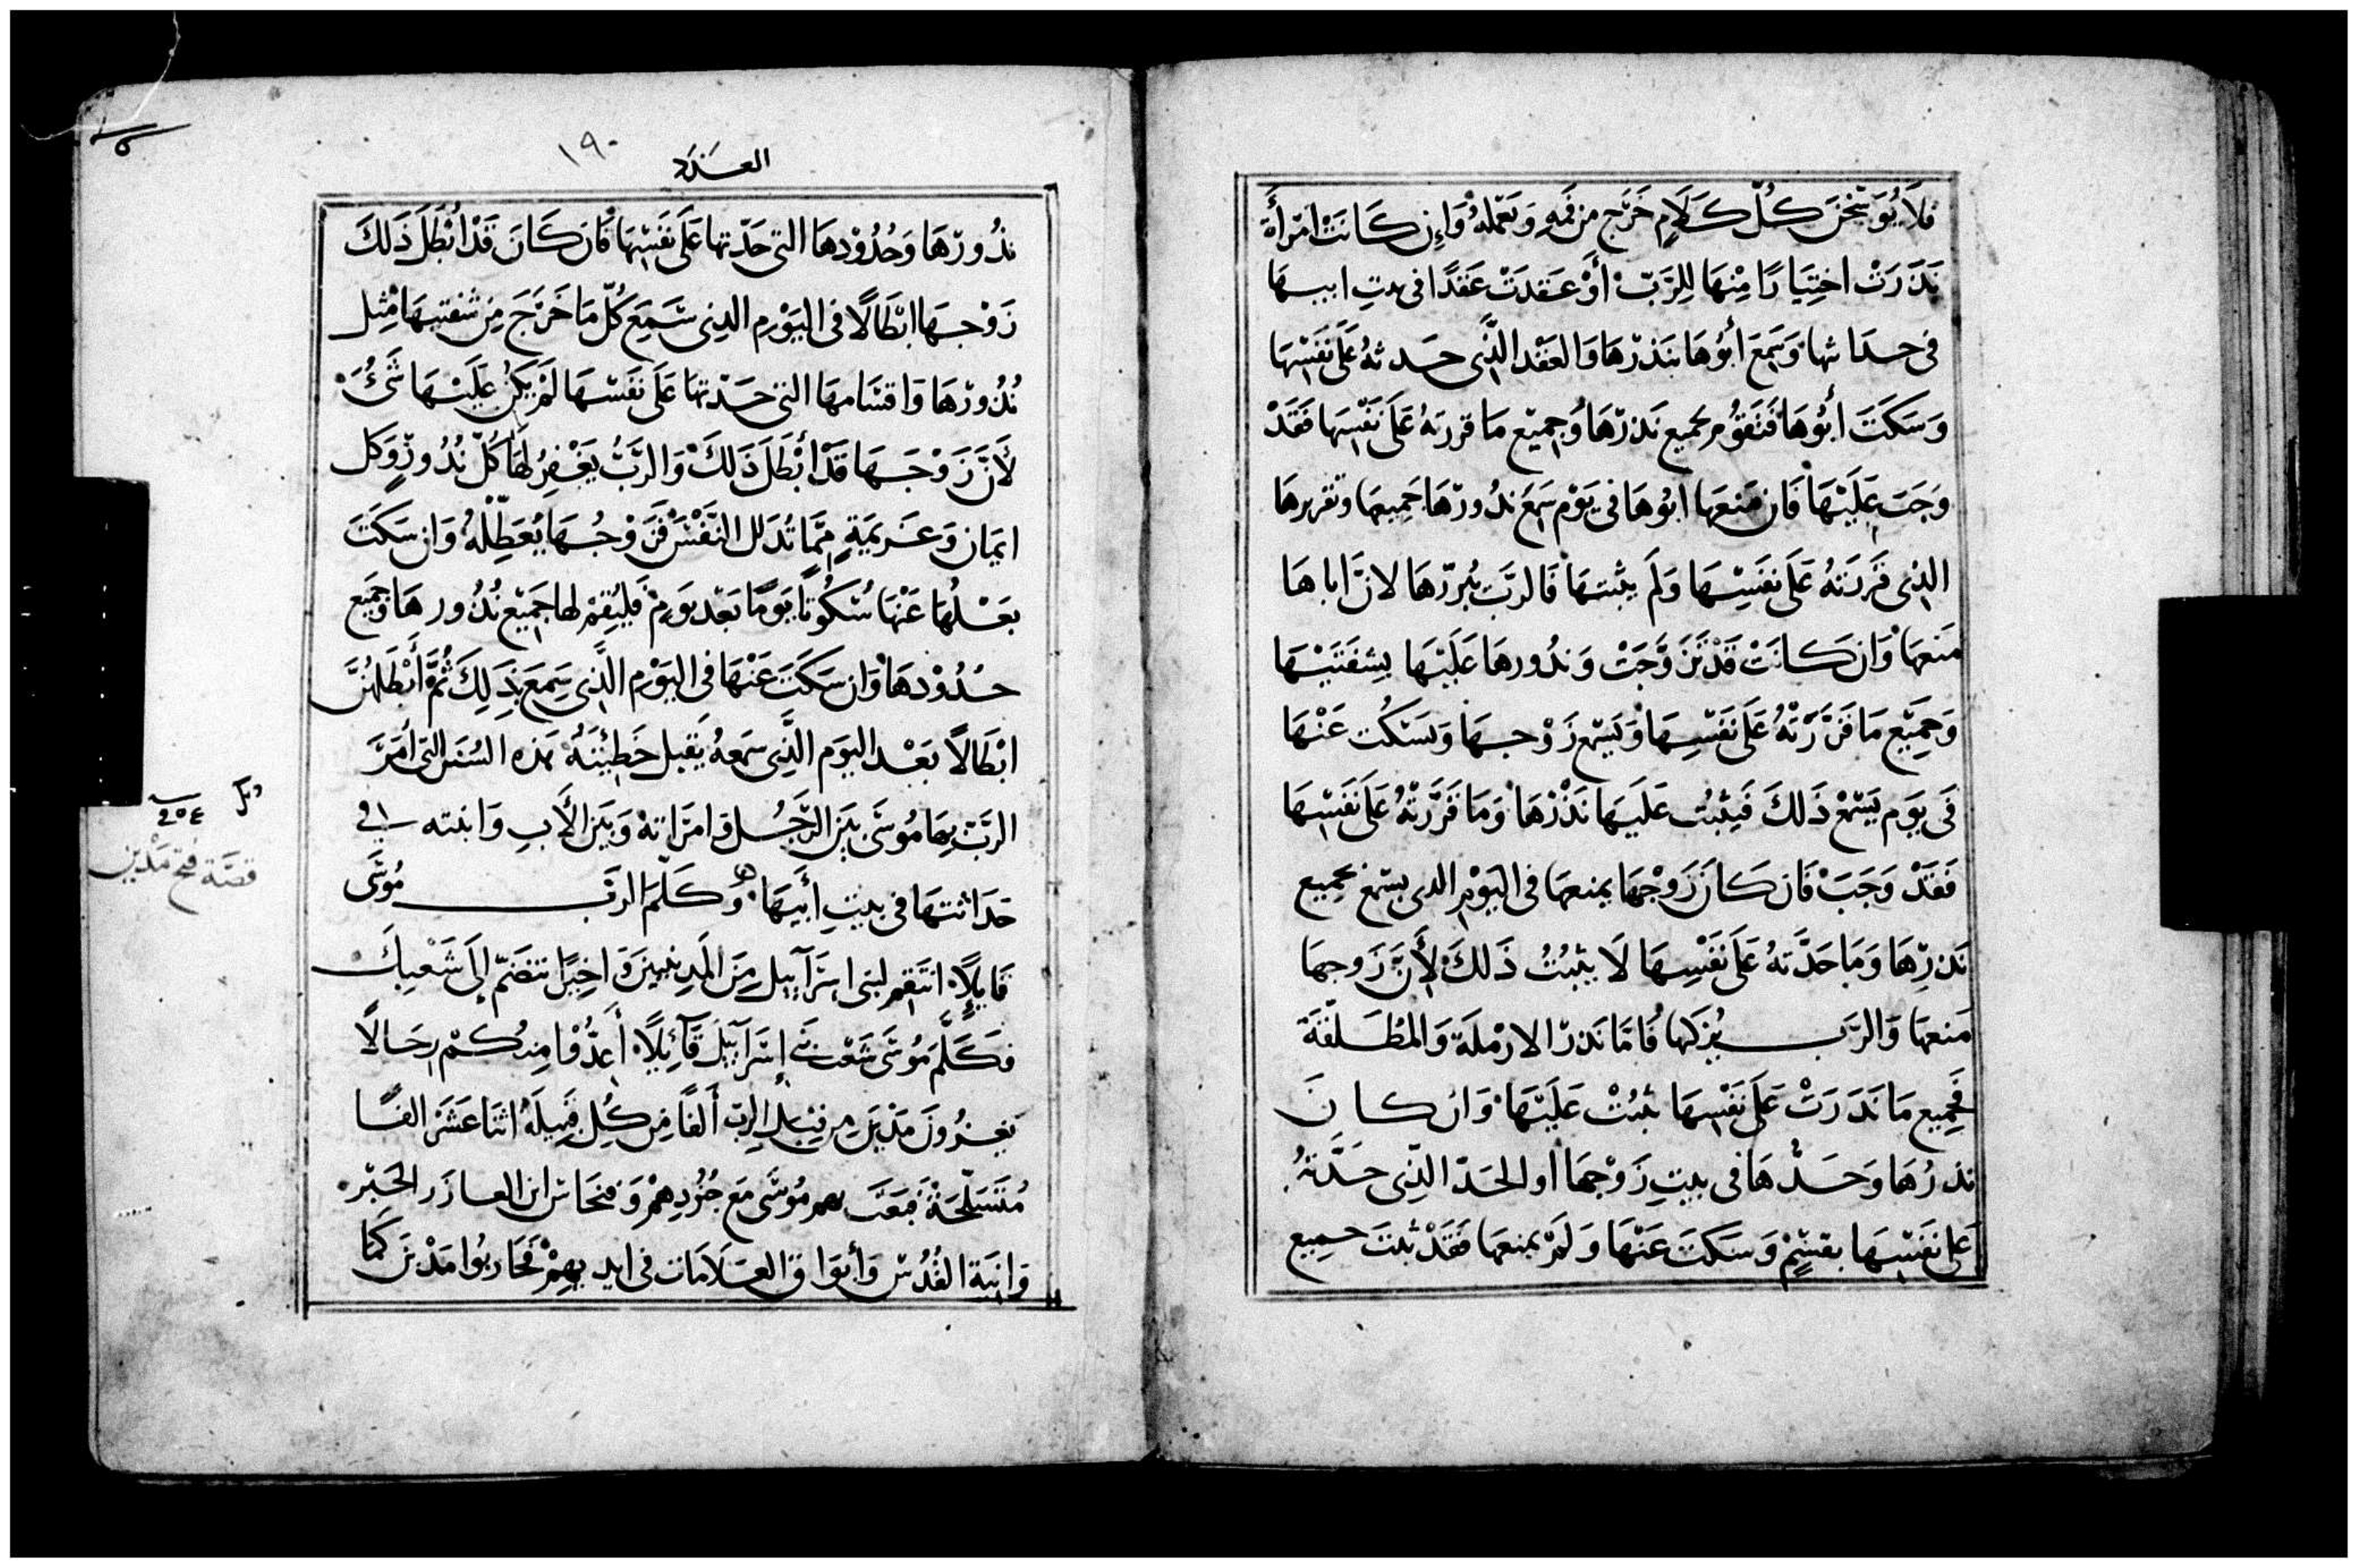 فَلَا يُوَبِّخَنَّ كُلّ كَلَامٍ خَرَج من فَمِهِ وَيَعْمَلهُ وَإِن كَانَتْ امْرأَة
نَذَرَتْ اختِيَارًا مِنْهَا لِلرَّبّ أَوْ عَقَدَتْ عَقدًا فى بيتِ ابيها
فى حداثتها وَسَمِعَ أبُوهَا بنَذرْهَا وَالعَقْد الَّذِى حدته عَلَى نَفْسِهَا
وَسَكَتَ ابُوهَا فَتَقوُم جميع نَذرْهَا وَجميْع مَا قررته عَلَى نَفْسِهَا فَقَدْ
وَجَبَ عَلَيْهَا فَان مَنعَها ابُوهَا فى يَوْم سَمَع نذُورْهَا جَميعها وتقريرها
الذى قررَته عَلَى نفَسِهَا وَلَم يثبتهَا فَالرَّبّ يُبررْهَا لانّ اباهَا
مَنعَها وَان كَانَتْ قَدْ تَزَوَّجَتْ وَنذُورهَا عَلَيْهَا بشِفَتَيْهَا
وَجميْع مَا قَرَّرَتْهُ عَلَى نفَسْهَا وَيسْمع زَوْجهَا وَيَسْكُت عَنْهَا
فى يوَم يَسْمَعْ ذَلكَ فَيَثبُت عَلَيهَا نَذْرْهَا وَمَا قَرَّرَتْهُ عَلَى نَفَسْهَا
فَقَدْ وَجَبَ فَان كَانَ زَوْجُهَا يمنعها فى اليَوْم الذى يسمع بجميع
نَذرِهَا وَمَا حَدَّتهُ عَلَى نَفْسِهَا لَا يثبُتُ ذَلكَ لأَنَّ زَوجها
مَنعها وَالرَّب يُزكها فَامّا نَذرْ الارْملَة وَالمُطَلّقَة
فَجميع مَا نَذَرَتْ عَلَى نَفْسِهَا يثبُتْ عَلَيْهَا وَان كَانَ
نذرُهَا وَحَدُّهَا فى بيتِ زَوْجها او الحَدّ الذِّى حَدَّتهُ
عَلَى نفَسْهَا بقسَمٍ وَسَكَتَ عَنْهَا وَلَمْ يمنعها فَقَدْ ثبتَ جميع
العدد
١٩٠
نذُورْهَا وَحُدُوْدهَا التى حَدّتها عَلَى نَفَسْهَا فَان كَانَ قَدْ ابْطَلَ ذَلكَ
زَوْجهَا ابْطَالًا فى اليَوْم الذِى سَمِعَ كُلّ مَا خَرَجَ مِن شفتيهَا مِثل
نُذُورْهَا وَاقسَامهَا التى حَدّتها عَلَى نَفَسْهَا لَمْ يَكن عَلَيْهَا شَئ
لأَنَّ زَوْجَهَا قَدْ أَبْطَلَ ذَلكَ وَالرَّبُّ يَغْفِرُ لَهَا كُلّ نُذُورٍ وَكل
ايمَان وَعَزيمَةٍ ممَّا تُذَلل النَّفْسَ فَزَوْجُهَا يُعَطِلّهُ وَان سَكَتَ
بَعْلُهَا عَنْهَا سُكُوتًا يوَمًا بَعْد يوَم فَليُقِمْ لها جَميْع نُذُورهَا وَجَميع
حُدُوْدهَا وَان سَكَتَ عَنْهَا فى اليَوْم الَّذِى سَمِعَ بذَلِكَ ثُمَّ أَبْطَلَهُنَّ
ابْطَالًا بَعْد اليوَم الَّذِى سمعهُ يَقبل خَطِيْئَتَهُ هذه السُنَن التى أمَرَ
الرَّبّ بهَا مُوسَى بَيْنَ الرَّجُل وَامرَاتهْ وَبَيْنَ الأَبِ وَابنته فى
حَدَاثتهَا فى بيتِ أَبيَها وَكَلَّمَ الرَبّ مُوسَى
قَايلًا انتَقِم لبنى اسْرَآيل مِنَ المَدينيينَ وَاخيرًا تنضَمّ إلَى شَعْبكَ
فكَلَّمَ مُوسَى شَعْب بنى إسْرَآيلَ قَآئِلًا أَعِدُّوْا مِنكُمْ رجَالًا
يَغزُونَ مَدْيَن مِن قِبَل الربّ أَلفًا مِن كُل قَبيلَةٍ اثنَا عَشَرَ الفًا
مُتَسَلّحَةْ فَبَعَثَ بهمِ مُوسَى مَع جُنُودِهِمْ وَفنحَاس ابن العازر الحَبْر
وَانيَة القُدُسْ وَأبوَاق العَلَامَات فى ايديهِمْ فَحَاربُوا مَدْيَن كَما
٢٥٤
قصّة فتح مَدْين